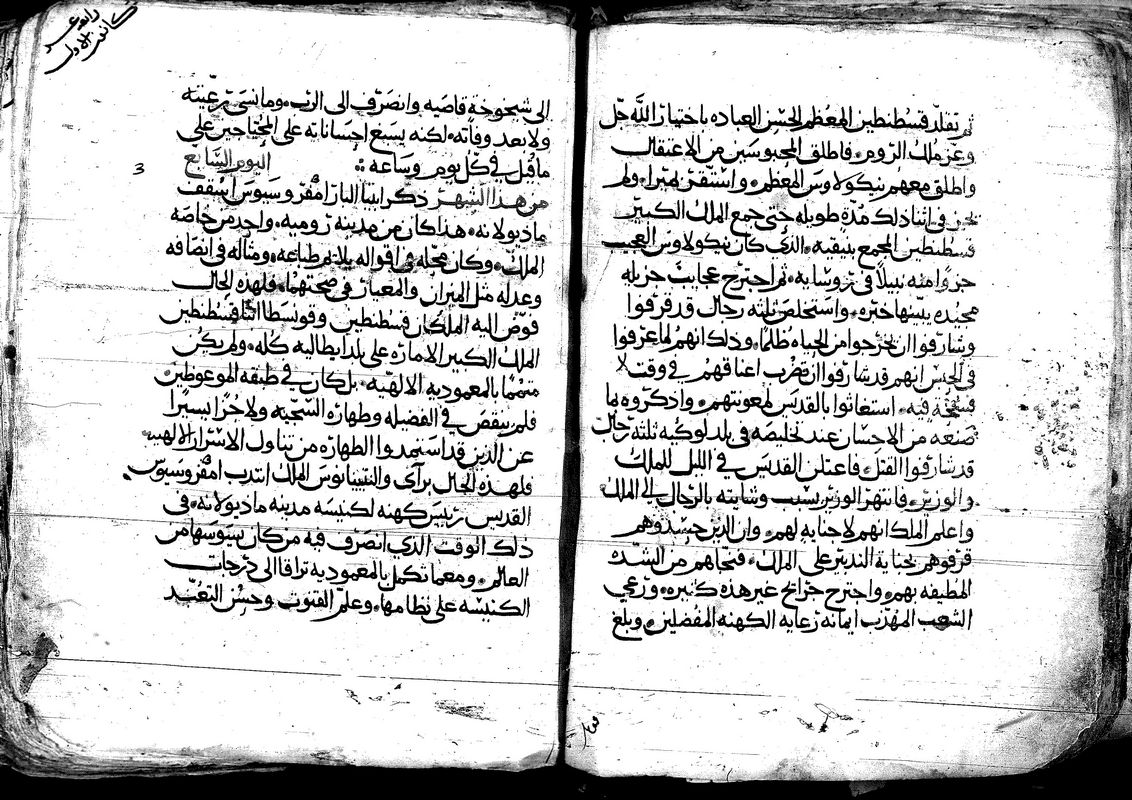 ثم تقلد قسطنطين المعظم الحسن العباده باختيار الله جل
وعز ملك الروم. فاطلق المحبوسين من الاعتقال
واطلق معهم نيكولاوس المعظم. واستقر في ميرا. ولم
في اثنا ذلك مدة طويله حتى جمع الملك الكبير
قسطنطين المجمع بنيقيه. الذي كان نيكولاوس العجيب
جزوا منه نبيلا في روسايه. ثم اجترح عجايب جزيله
مجيده بينها خبره. واستخلص ثلثه رجال قد قرفوا
وشارفوا ان يخرجوا من الحياه ظلما. وذلك انهم لما عرفوا
في الحبس انهم قد شارفوا ان تضرب اعناقهم في وقت لا
فسحه فيه. استغاثوا بالقديس لمعونتهم. واذكروه بما
صنعه من الاحسان عند تخليصه في بلد لوكيه ثلثه رجال
قد شارفوا القتل. فاعتلن القديس في الليل للملك
والوزير. فانتهر الوزير بسبب وشايته بالرجال الى الملك
واعلم الملك انهم لا جنايه لهم. وان الذين حسدوهم
قرفوهم بجناية التدبير على الملك. فنجاهم من الشده
المطيفه بهم. واجترح جرائح غير هذه كثيره. ورعي
الشعب المهذب ايمانه رعايه الكهنه المفضلين. وبلغ
رابع عشر
كانون الاول
الى شيخوخة قاصيه وانصرف الى الرب. وما نسي رعيته
ولا بعد وفاته. لكنه يسبغ احساناته على المحتاجين على
ما قيل في كل يوم وساعه : اليوم السابع
3
من هذا الشهر ذكر ابينا البار امبروسيوس اسقف
ماديولانه. هذا كان من مدينه روميه. واحد من خاصه
الملك. وكان محله في اقواله يلايم طباعه. ومثاله في انصافه
وعدله مثل الميزان والمعيار في صحتهما. فلهذه الحال
فوض اليه الملكان قسطنطين وقوسطا ابنا قسطنطين
الملك الكبير الاماره على بلد ايطاليه كله. ولم يكن
متمما بالمعموديه الالهيه. بل كان في طبقه الموعوظين
فلم ينقص في الفضيله وطهاره السجيه ولا جزا يسيرا
عن الذين قد استمدوا الطهاره من تناول الاسرار الالهيه
فلهذه الحال برآى والنتينيانوس الملك انتدب امبروسيوس
القديس رييس كهنه لكنيسه مدينه ماديولانه. في
ذلك الوقت الذي انصرف فيه من كان يسوسها من
العالم. ومعما تكمل بالمعموديه تراقا الى درجات
الكنيسه على نظامها. وعلم القنوت وحسن التعبد